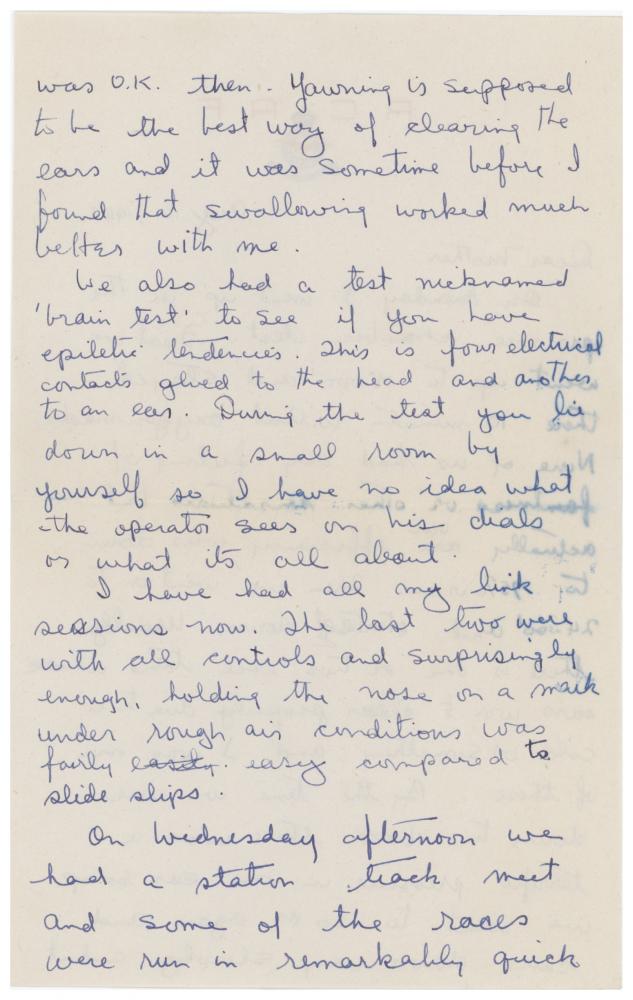 was O.K. then. Yawning is supposed
to be the best way of clearing the
ears and it was sometime before I
found that swallowing worked much
better with me.
We also had a test nicknamed
'brain test' to see if you have
epiletic tendencies. This is four electrical
contacts glued to the head and another
to an ear. During the test you lie
down in a small room by
yourself so I have no idea what
the operator sees on his dials
or what its all about.
I have had all my link
sessions now. The last two were
with all controls and surprisingly
enough, holding the nose on a mark
under rough air conditions was
fairly easily easy compared to
slide slips.
On Wednesday afternoon we
had a station track meet
and some of the races
were run in remarkably quick